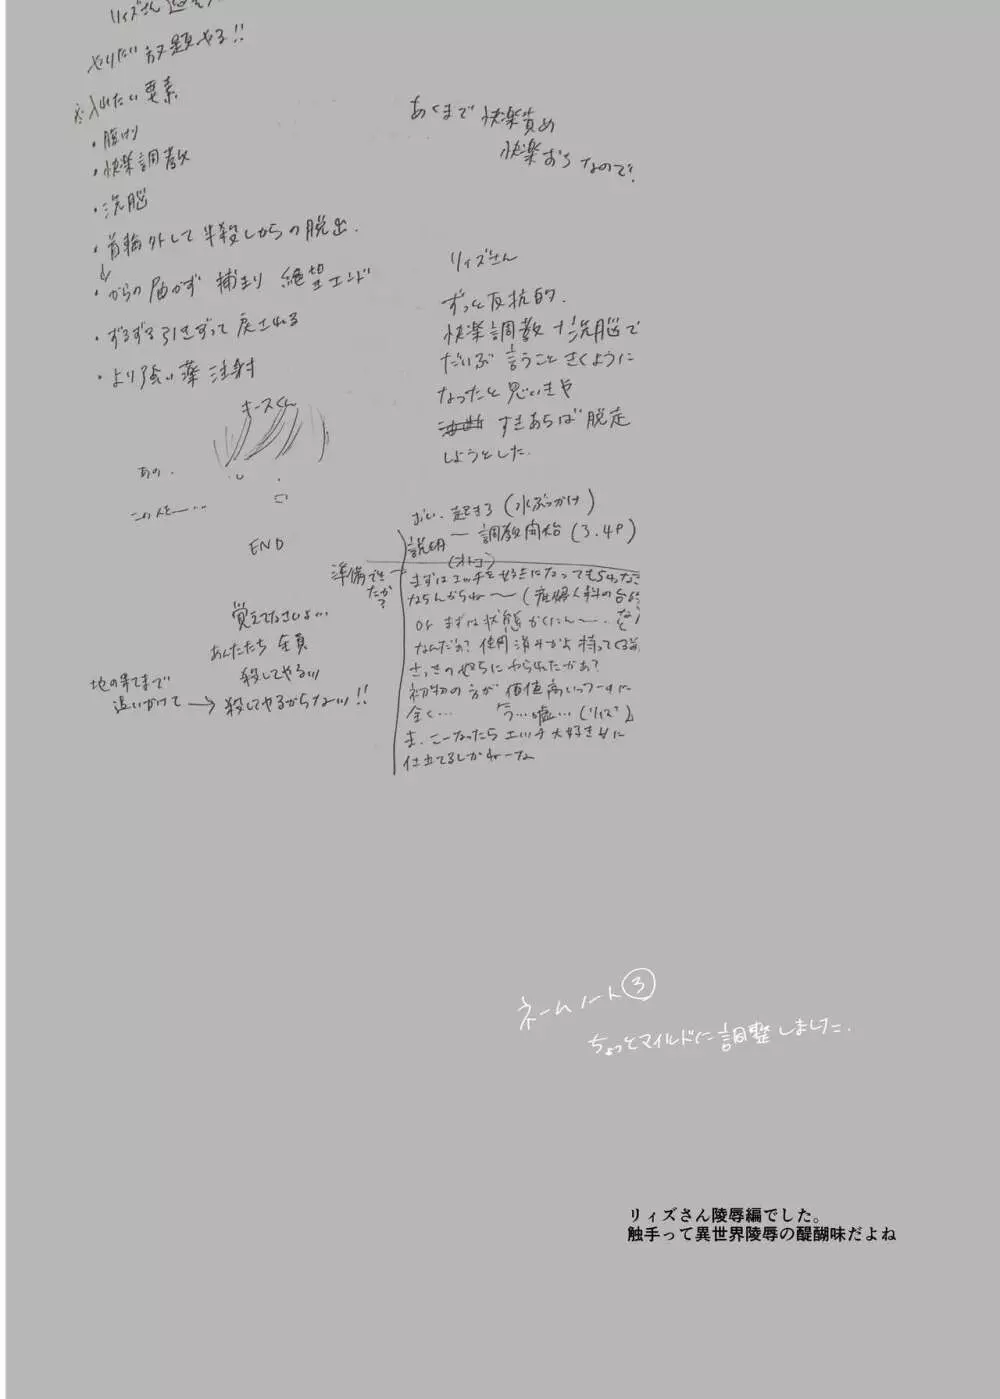 リィズさん
やりたい放題やる!!
※入れたい要素
・腹けり
・快楽調教
・洗脳
・首輪外して半殺しからの脱出.
・からの届かず 捕まり 絶望エンド
・ずるずる引きずって戻される
・より強い薬注射
キースくん
あの.
この人を一…
END
覚えてなさいよ…
あんたたち 全員
殺してやる!!!
地の果てまで
追いかけて → 殺してやるからな!!!
あくまで 快楽責め
快楽おち なので!
リィズさん
ずっと反抗的.
快楽調教+洗脳で
だいぶ 言うこときくように
なったと思いきや
すきあらば脱走
しようとした.
おい. 起きろ(水ぶっかけ)
説明 ― 調教開始(3.4P)
(オトコ)
準備でき
たか?
まずはエッチを好きになってもらわな
ならんからね〜(産婦人科の台
or まずは状態かくにん〜.
なんだぁ? 使用済みかよ 持ってくる
さっきの奴らにやられたかぁ?
初物の方が 価値高いっつーのに
全く… う…嘘…(リィズ)
ま. こーなったらエッチ大好き女に
仕立てるしかねーな
ネームノート③
ちょっとマイルドに調整しました.
リィズさん陵辱編でした。
触手って異世界陵辱の醍醐味だよね